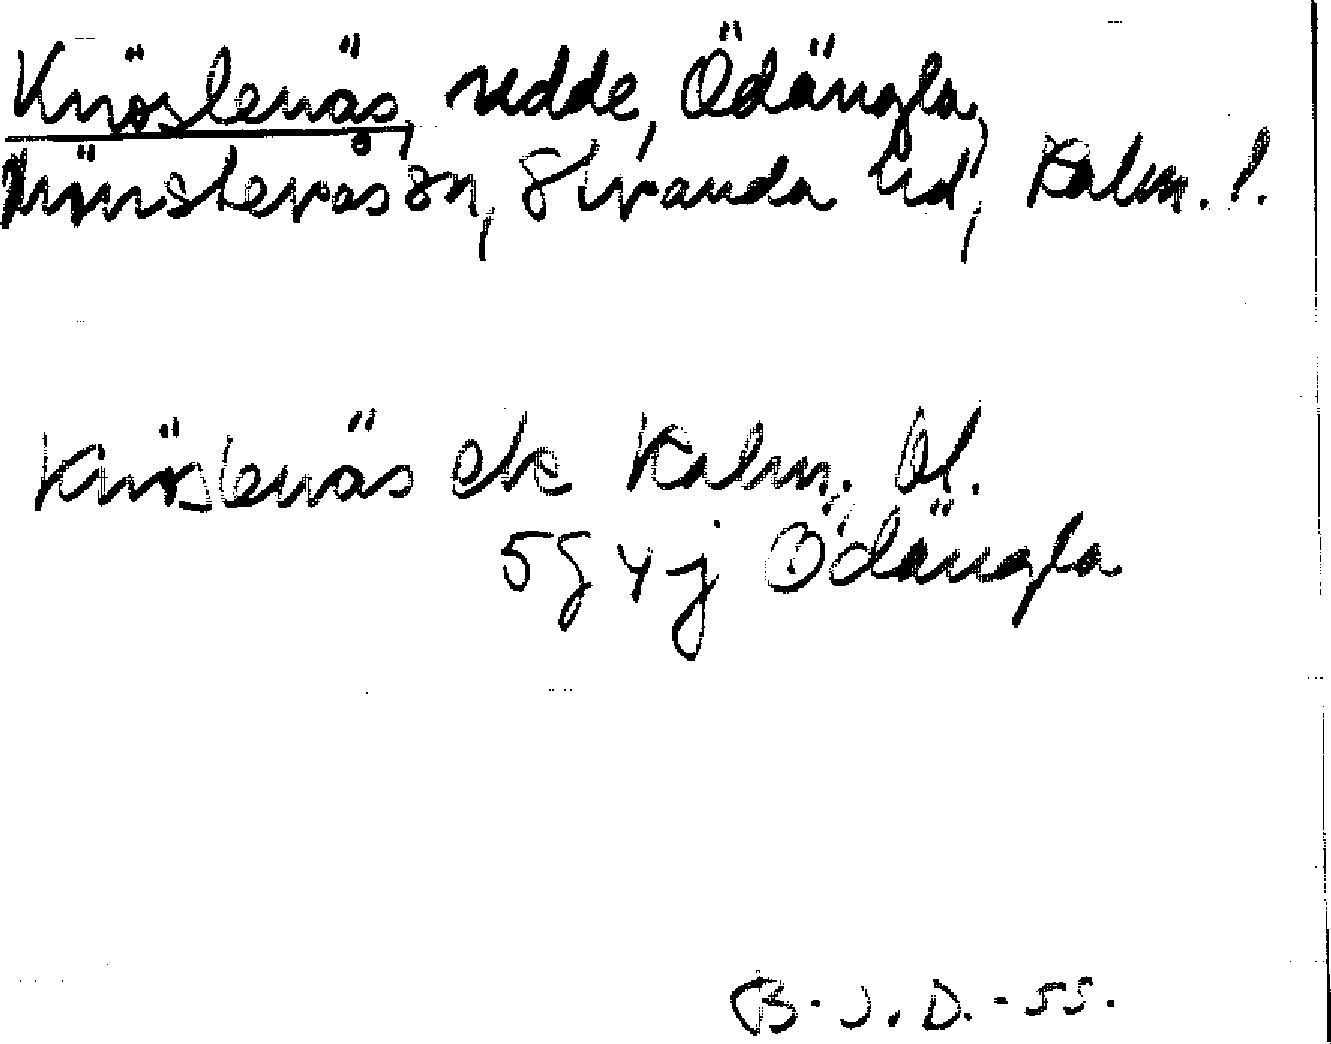 Knöslenäs, udde, Ödängla,
Mönsterås sn, Stranda hd, Kalm. l.
Knöslenäs ek Kalm. bl.
5g4j Ödängla
B.J.D.-55.